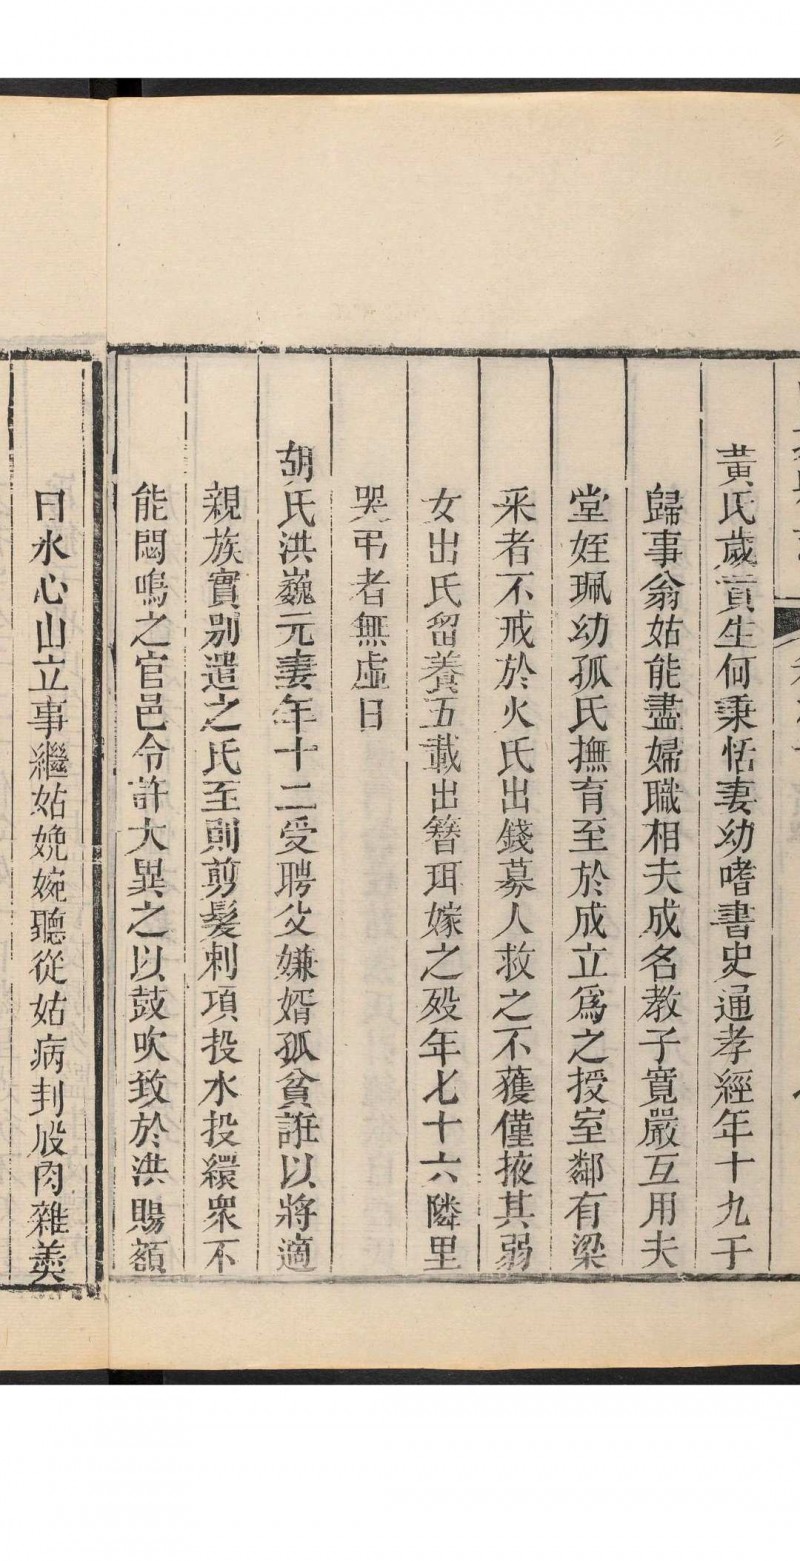 黃氏歲貢生何秉恬妻幼嗜書史通孝經年十九于
歸事翁姑能盡婦職相夫成名教子寬嚴互用夫
堂姪珮幼孤氏撫育至於成立爲之授室鄰有梁
采者不戒於火氏出錢募人救之不獲僅掖其弱
女出氏留養五載出簪珥嫁之殁年七十六隣里
哭弔者無虛日
胡氏洪巍元妻年十二受聘父嫌婿孤貧誑以將適
親族實別遣之氏至則剪髮刺項投水投繯衆不
能悶鳴之官邑令許大異之以鼓吹致於洪賜額
曰氷心山立事繼姑娩婉聽從姑病刲股肉雜羮